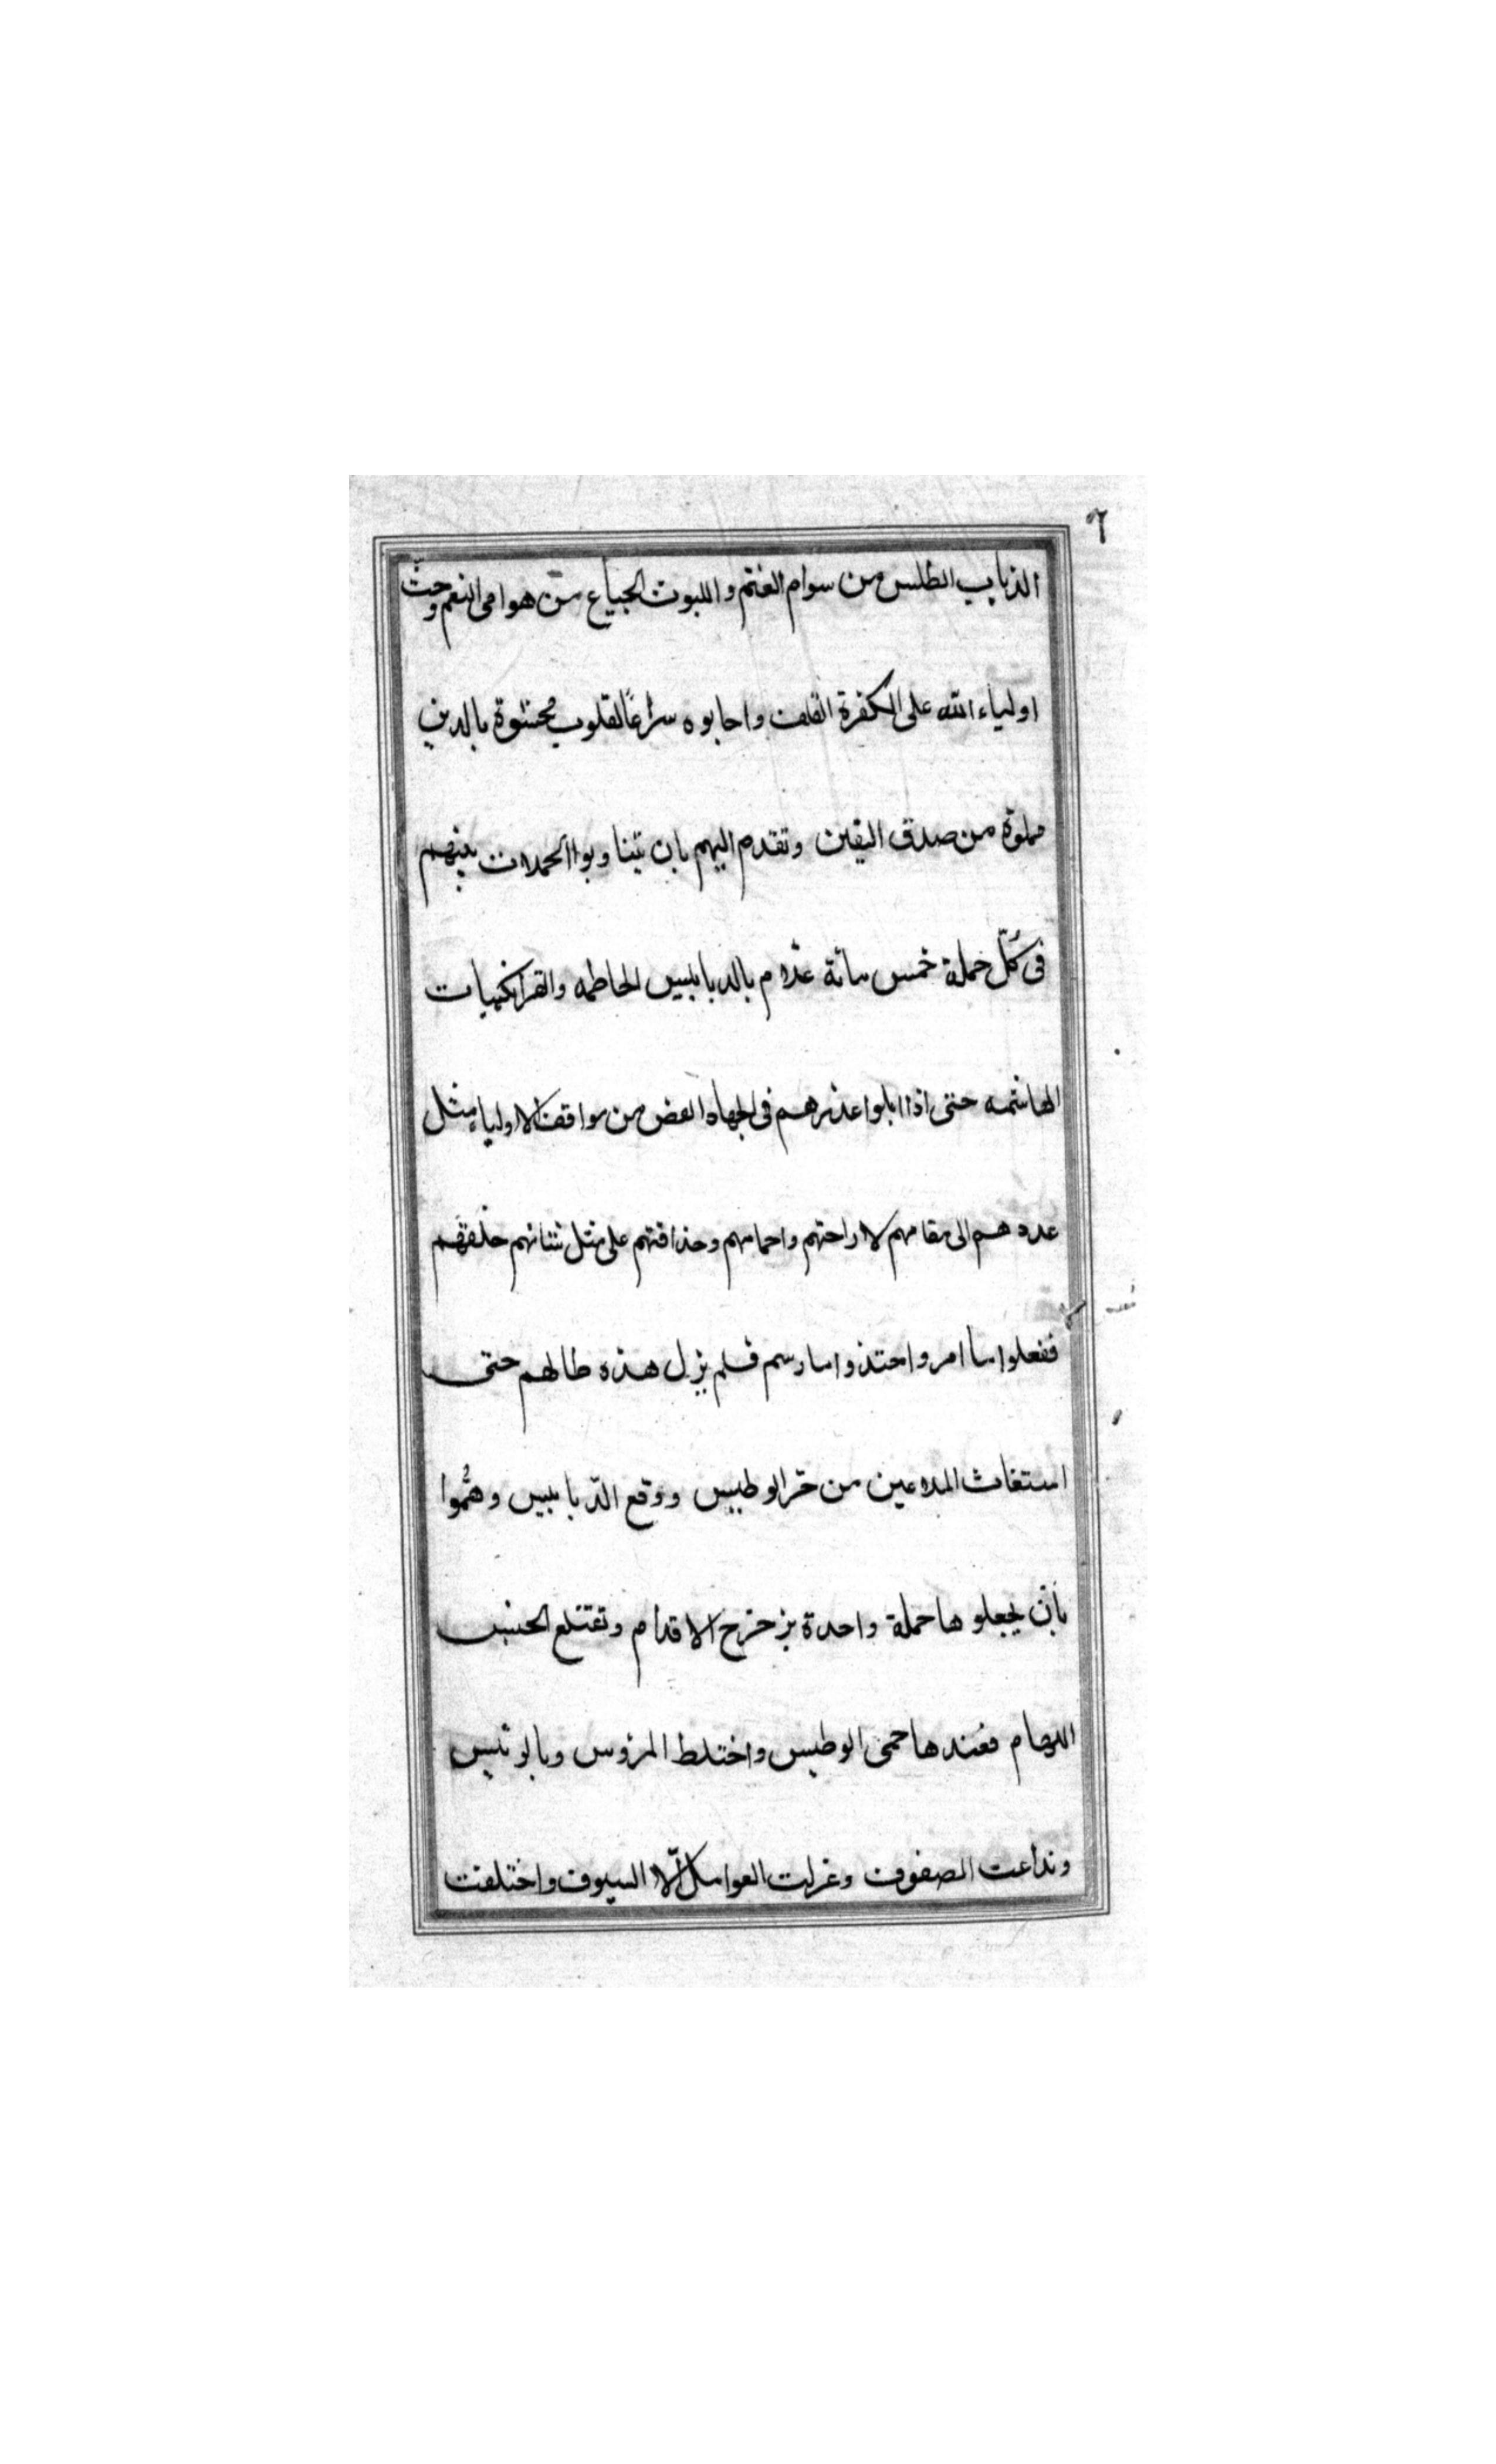 ٦
الذياب الطلس من سوام الغنم والليوث الجياع من هوامى النعم وحثّ
اولياء الله على الكفرة القلف واجابوه سراعًا لقلوب محشوة بالدين
مملوة من صدق اليقين وتقدم اليهم بان يتناوبوا الحملات بينهم
فى كلّ حملة خمس مائة غلام بالدبابيس الحاطمه والقراتكينيات
الهاشمه حتى اذا ابلوا عذرهم فى الجهاد انفض من مواقف الاولياء مثل
عددهم الى مقامهم لاراحتهم واجمامهم وحذافتهم على مثل شانهم خلفهم
ففعلوا ما امر واحتذوا ما رسم فلم يزل هذه حالهم حتى
استغاث الملاعين من حرّ الوطيس ووقع الدّبابيس وهمُّوا
بأن يجعلوها حملة واحدة يزحزح الاقدام وتقتلع
اللهام فعندها حمى الوطيس واختلط المرؤس وبالرئيس
وتداعت الصفوف وعزلت العوامل الّا السيوف واختلفت